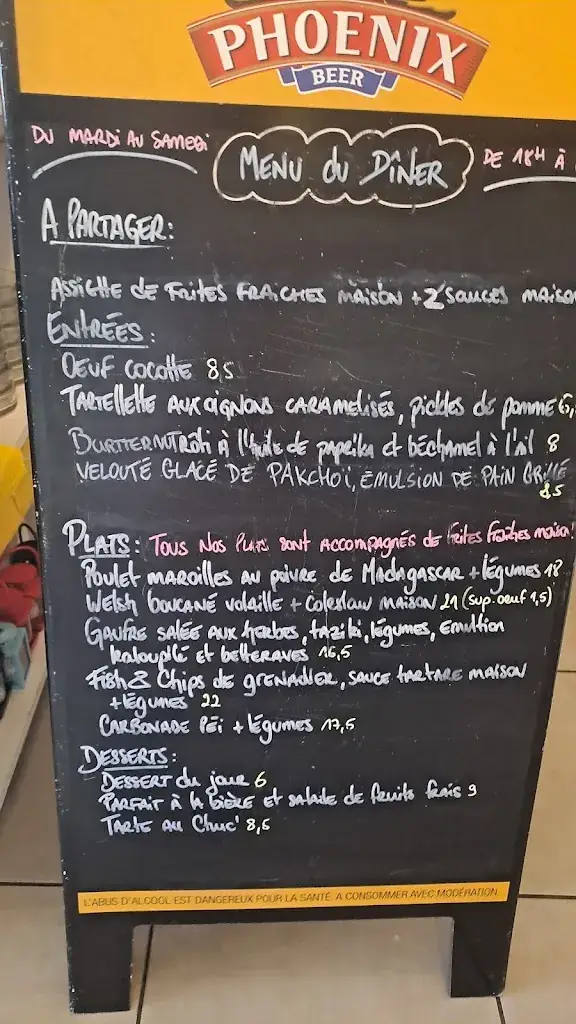 PHOENIX
BEER
DU MARDI AU SAMEDI
MENU DU DÎNER
DE 18H À
A PARTAGER:
ASSIETTE DE FRITES FRAICHES MAISON + 2 SAUCES MAISON
ENTRÉES:
OEUF COCOTTE 8,5
TARTELLETTE AUX OIGNONS CARAMELISÉS, pickles de pomme 6,
BUTTERNUT Rôti À l'huile de paprika et béchamel à l'ail 8
VELOUTÉ GLACÉ DE PAKCHOÏ, EMULSION DE PAIN GRILLÉ
8,5
PLATS: TOUS NOS PLATS SONT ACCOMPAGNÉS DE frites fraîches maison!
POULET MAROILLES AU POIVRE DE MADAGASCAR + légumes 18
WELSH boucané volaille + Coleslaw MAISON 21 (sup. oeuf 1,5)
GAUFRE SALÉE AUX herbes, taziki, légumes, EMULTION
et betteraves 16,5
FISH & Chips de GRENADIER, SAUCE TARTARE MAISON
+ légumes 22
CARBONADE PÉI + légumes 17,5
DESSERTS:
DESSERT du jour 6
PARFAIT À la bière et salade de fruits frais 9
TARTE AU Chuc' 8,5
L'ABUS D'ALCOOL EST DANGEREUX POUR LA SANTÉ. A CONSOMMER AVEC MODÉRATION.